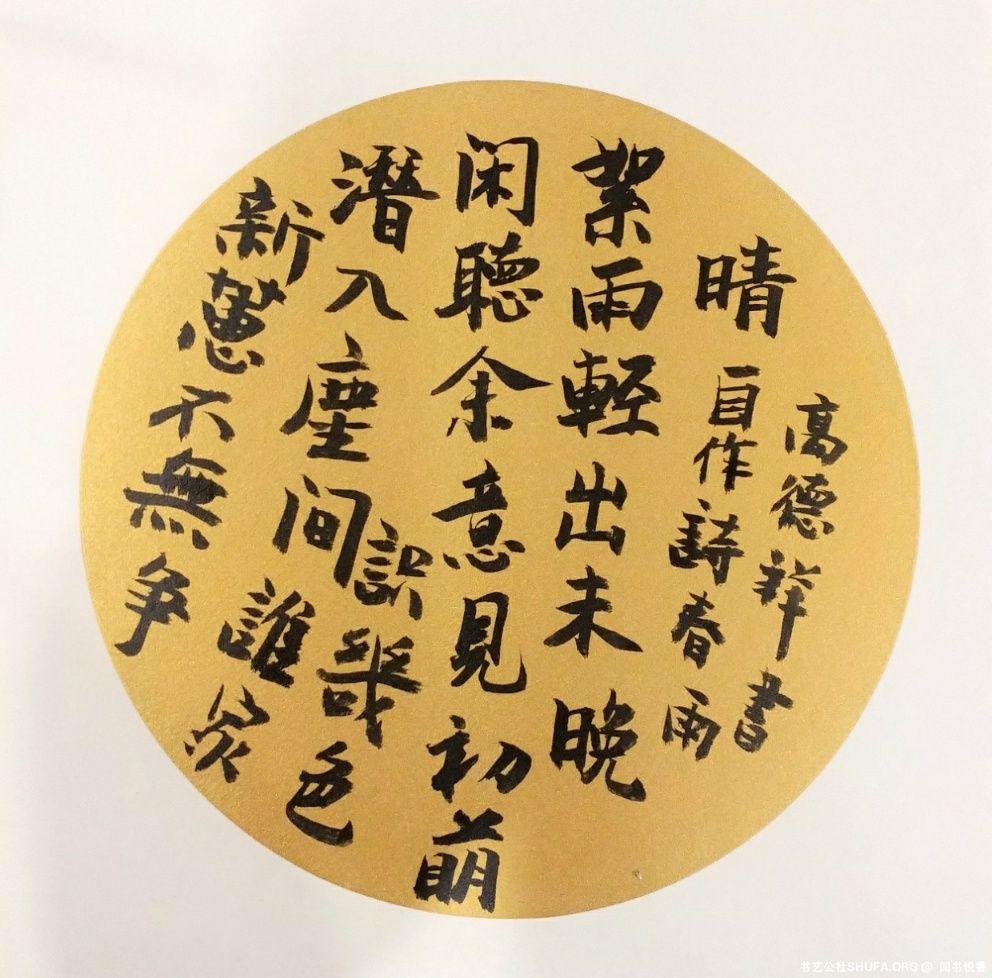 新蕙不無爭
誰
潛入塵間
識幾色
閑聽余意見初萌
絮雨輕出未晚
晴
自作詩春雨
高德祥書
书艺公社SHUFA.ORG @ 闻书悦香